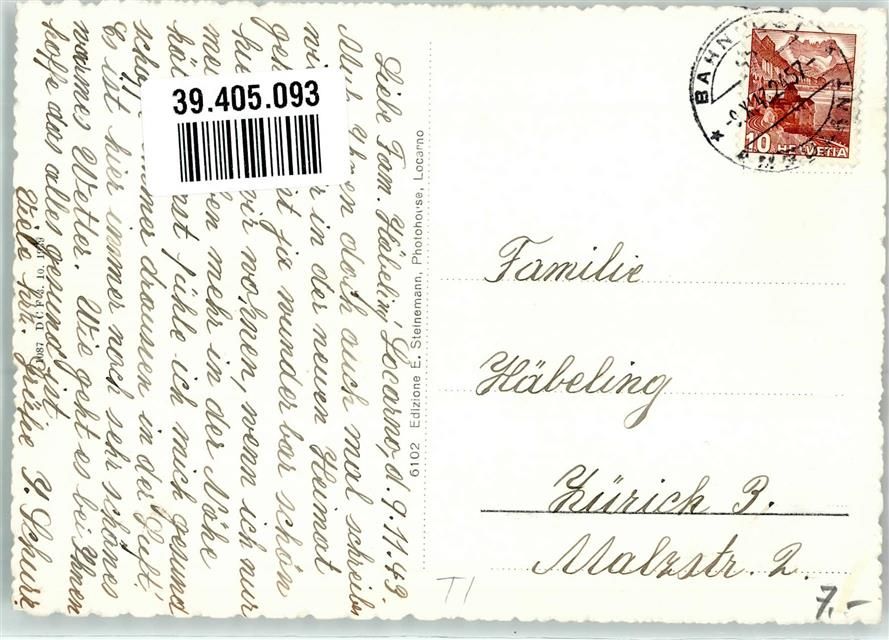 39.405.093
Liebe Fam. Häbeling Locarno, d. 9.11.49.
Muß Ihnen doch auch mal schreiben
in der neuen Heimat
ja wunderbar schön
wir wohnen, wenn ich nur
mehr in der Nähe
fühle ich mich gesund
draussen in der Luft.
Es ist hier immer noch sehr schönes
warmes Wetter. Wie geht es bei Ihnen
hoffe das alles gesund ist.
Viele Grüße Y. Schurr.
6102 Edizione E. Steinemann, Photohouse, Locarno
BAHNPOST
10 HELVETIA
Familie
Häbeling
Zürich 3.
Malzstr. 2.
T1
7.-